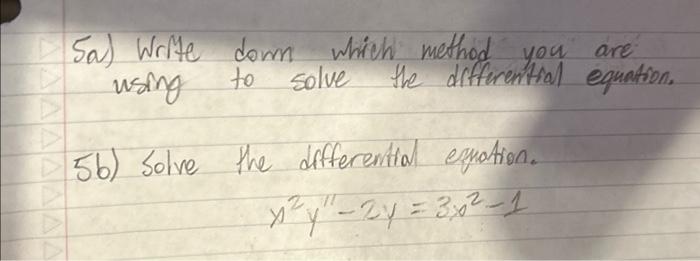 5a) Write down which method you are
using to solve the differential equation.
5b) Solve the differential equation.
x²y'' - 2y = 3x² - 1